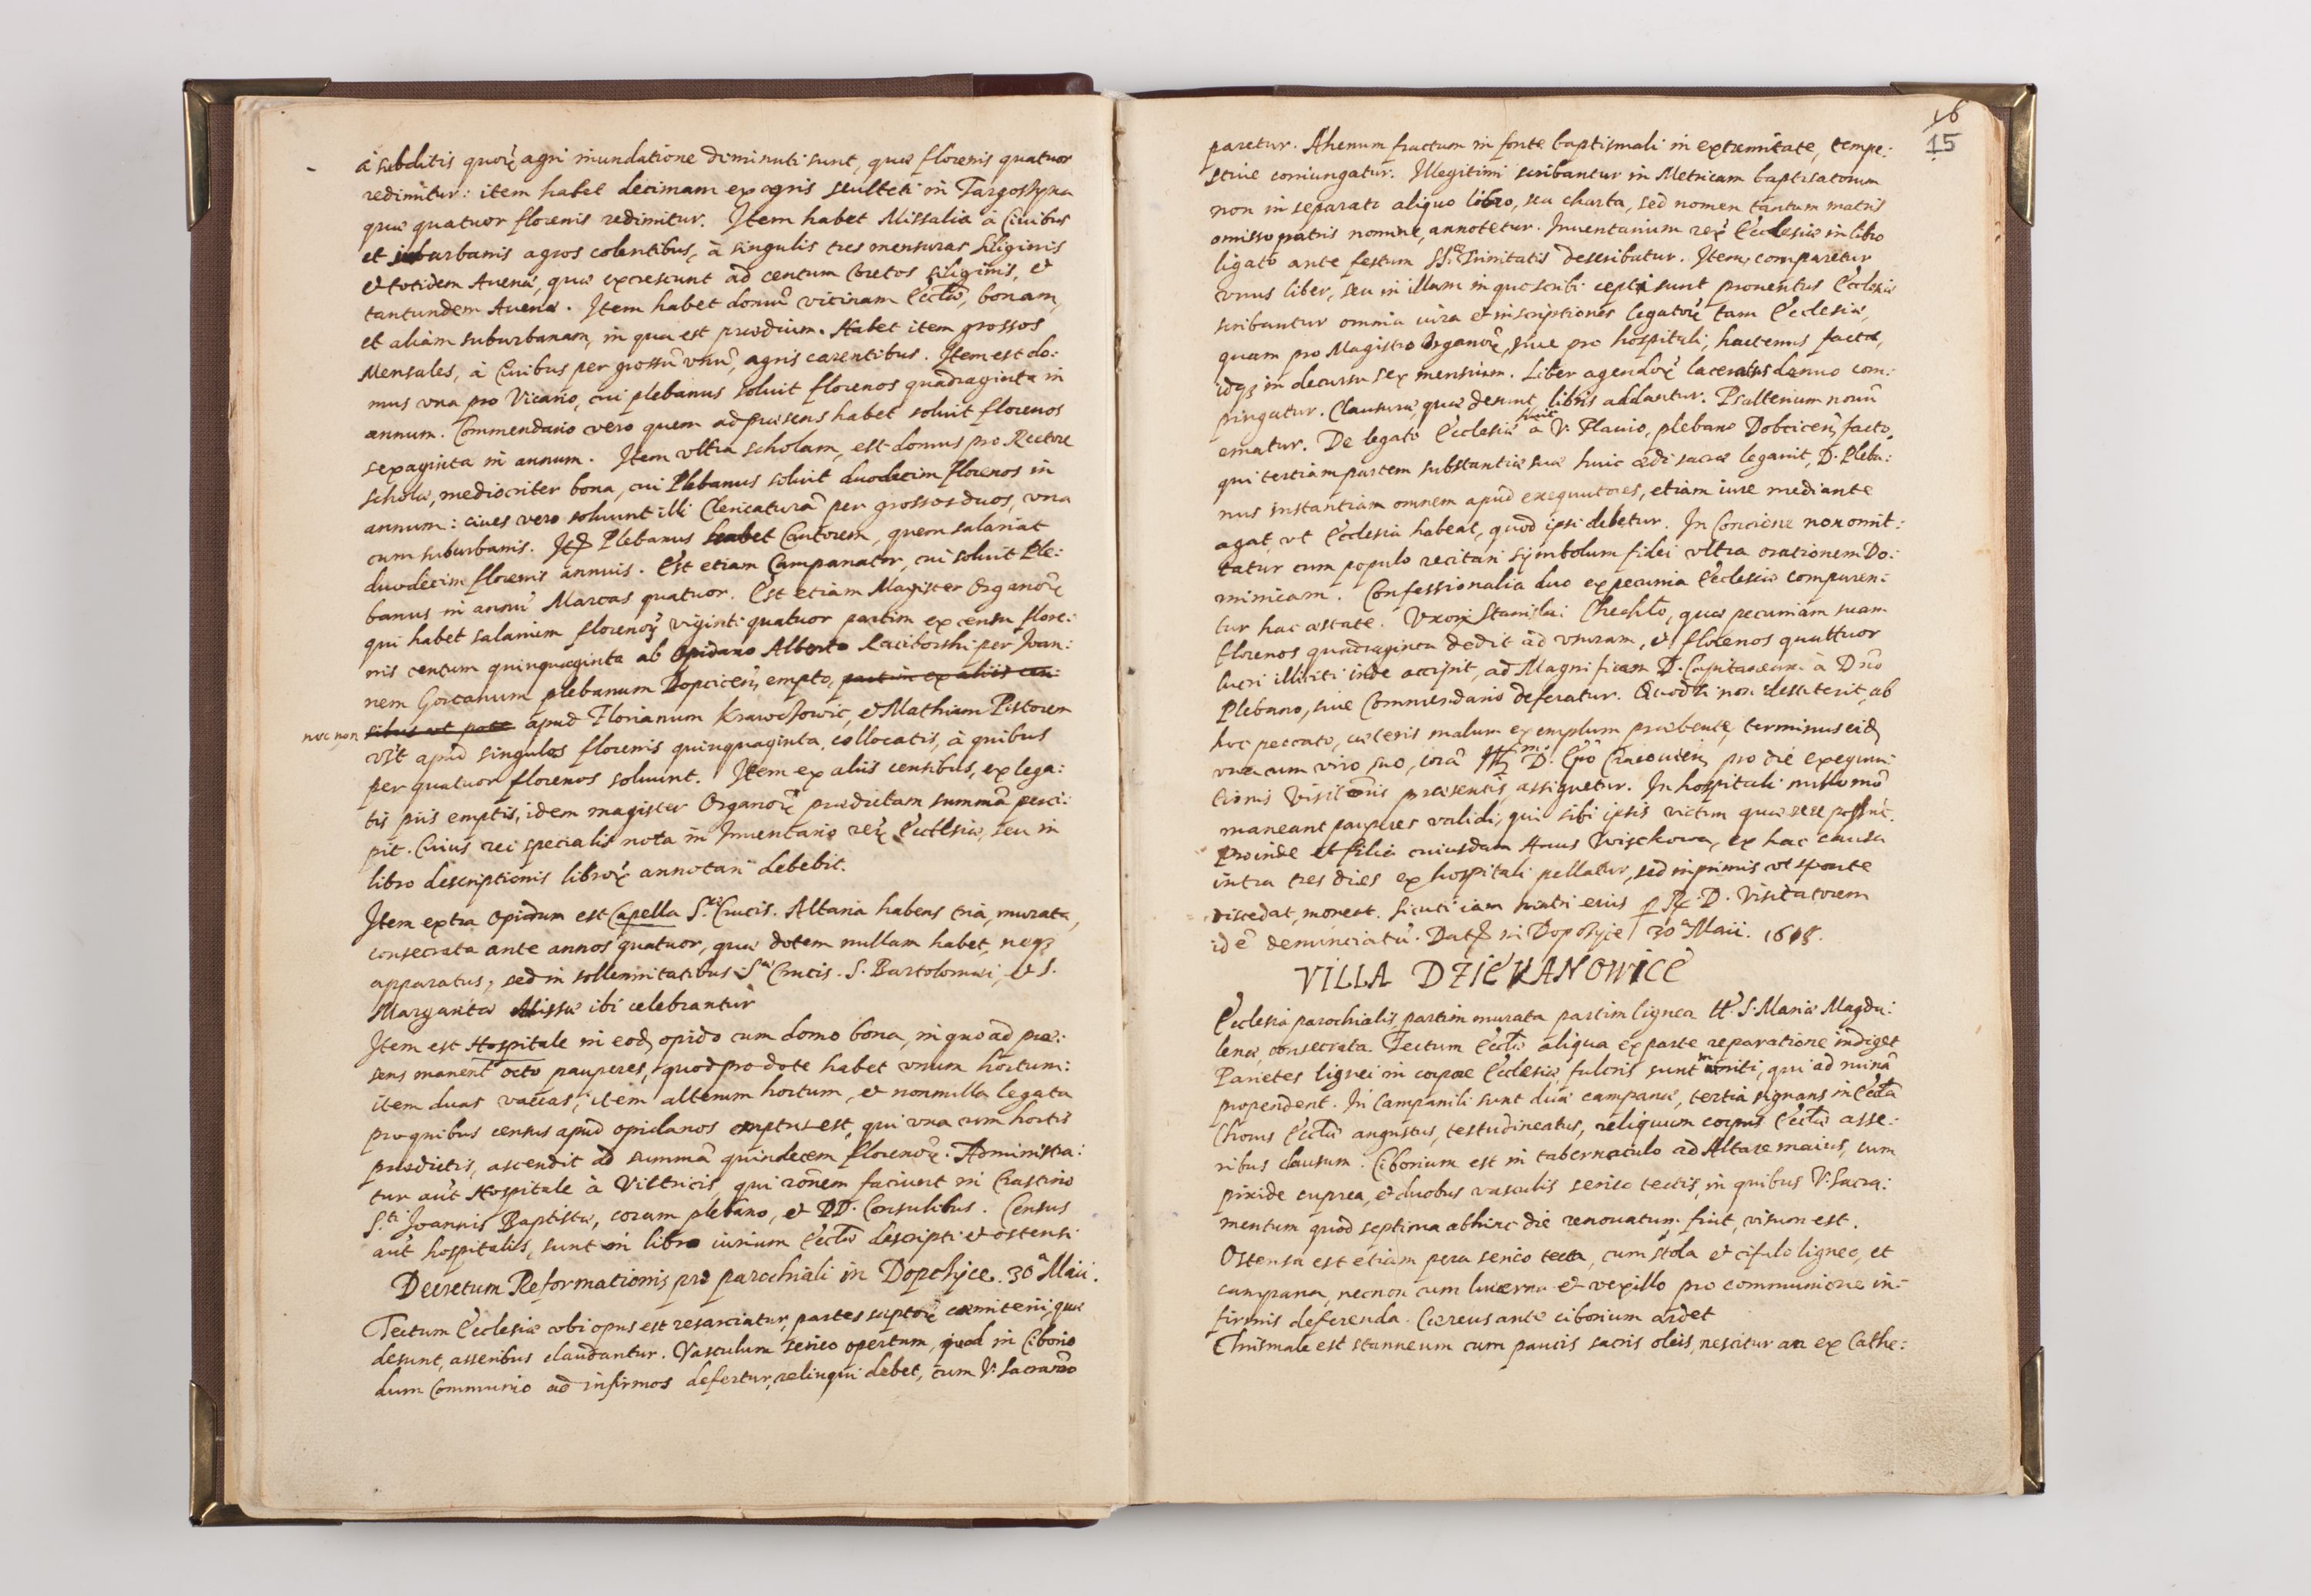 à subditis quorũ agri inundatione diminuti sunt, quæ florenis quatuor
redimitur: item habet decimam ex agris sculteti in Targoszyna
quæ quatuor florenis redimitur. Item habet Missalia à Ciuibus
et suburbanis agros colentibus, à singulis tres mensuras siliginis
et totidem Auenæ, quæ excrescunt ad centum Coretos siliginis, et
tantundem Auenæ. Item habet domũ vicinam Eccłæ, bonam,
et aliam suburbanam, in qua est prædium. Habet item grossos
Mensales, à Ciuibus per grossũ vnũ, agris carentibus. Item est do:
mus vna pro Vicario, cui plebanus soluit florenos quadraginta in
annum. Commendario vero quem ad præsens habet soluit florenos
sexaginta in annum. Item vltra scholam, est domus pro Rectore
scholæ, mediocriter bona, cui Plebanus soluit duodecim florenos in
annum: ciues vero soluunt illi Clericaturã per grossos duos, vna
cum suburbanis. Itẽ Plebanus habet Cantorem, quem salariat
duodecim florenis annuis. Est etiam Campanator, cui soluit Ple:
banus in annũ Marcas quatuor. Est etiam Magister Organorũ
qui habet salarium florenorũ viginti quatuor partim ex censu flore:
nis centum quinquaginta ab Opidano Alberto Raciborski per Joan:
nem Gorcanum plebanum Dopcicen̄, empto, partim ex aliis cen:
nec non sibus vt pote apud Florianum Krawczowic, et Mathiam Pistorem
vt apud singulos florenis quinquaginta collocatis, à quibus
per quatuor florenos soluunt. Item ex aliis censibus, ex lega:
tis piis emptis, idem magister Organorũ prædictam summã perci:
pit. Cuius rei specialis nota in Inuentario rerũ Ecclesiæ, seu in
libro descriptionis librorũ annotari debebit.
Item extra Opidum est Capella S. Crucis. Altaria habens tria, murata,
consecrata ante annos quatuor, quæ dotem nullam habet, neqꝫ
apparatus, sed in sollemnitatibus S. Crucis. S. Bartolomæi, et S.
Margaritæ Missæ ibi celebrantur
Item est Hospitale in eod̄ opido cum domo bona, in quo ad præ:
sens manent octo pauperes, quod pro dote habet vnum hortum:
item duas vaccas, item alterum hortum, et nonnulla legata
pro quibus census apud opidanos emptus est, qui vna cum hortis
prædictis, ascendit ad summã quindecem florenorũ. Administra:
tur aũt Hospitale à Vittricis, qui rõnem faciunt in Crastino
S.ti Joannis Baptistæ, coram plebano, et DD. Consulibus. Census
aũt hospitalis, sunt in libro iurium Eccłæ descripti et ostensi
Decretum Reformationis pro parochiali in Dopczyce. 30ª Maii.
Tectum Ecclesiæ vbi opus est resarciatur, partes septorũ cæmiterii, quæ
desunt, asseribus claudantur. Vasculum serico opertum, quod in Ciborio
dum Communio ad infirmos defertur, relinqui debet, cum V. Sacramẽto
16
15
paretur. Ahenum fractum in fonte baptismali in extremitate, tempe:
stiue coniungatur. Illegitimi scribantur in Metricam baptisatorum
non in separato aliquo libro, seu charta, sed nomen tantum matris
omisso patris nomine, annotetur. Inuentarium rerũ Ecclesiæ in libro
ligato ante festum SS. Trinitatis describatur. Item comparetur
vnus liber, seu in illum in quo scribi cepti sunt prouentus Ecclesiæ
scribantur omnia iura et inscriptiones legatorũ tam Ecclesiæ,
quam pro Magistro Organorũ, siue pro hospitali, hactenus facta,
idqꝫ in decursu sex mensium. Liber agendorũ laceratus denuo com:
pingatur. Clausuræ, quæ desunt libris addantur. Psalterium nouũ
ematur. De legato Ecclesiæ huic à V. Flauio, plebano Dobcicen̄ facto,
qui tertiam partem substantiæ suæ huic ædi sacræ legauit, D. Pleba:
nus instantiam omnem apud exequutores, etiam iure mediante
agat, vt Ecclesia habeat, quod ipsi debetur. In Concione non omit:
tatur cum populo recitari symbolum fidei vltra orationem Do:
minicam. Confessionalia duo ex pecunia Ecclesiæ comparen:
tur hac æstate. Vxor Stanislai Chechło, quæ pecuniam suam
florenos quadraginta dedit ad vsuram, et florenos quattuor
lucri illiciti inde accipit, ad Magnificum D. Capitaneum à Dnõ
Plebano, siue Commendario deferatur. Quod si non destiterit ab
hoc peccato, cæteris malum exemplum præbente, terminus eid̄
vna cum viro suo, corã Illm̄o D. Epõ Cracouien̄, pro die exequu:
tionis Visitõnis præsentis, assignetur. In hospitali nullo mõ
maneant pauperes validi, qui sibi ipsis victum quærere possũt.
proinde et filia cuiusdam Annæ Zwisckowa, ex hac causa
intra tres dies ex hospitali pellatur, sed inprimis vt sponte
discedat, moneat. Sicuti iam matri eius p R. D. Visitatorem
idẽ denunciatũ. Datũ in Dopczyce 30ª Maii. 1618.
VILLA DZIEKANOWICE
Ecclesia parochialis, partim murata partim lignea tt. S. Mariæ Magda:
lenæ, consecrata. Tectum Eccłæ aliqua ex parte reparatione indiget
Parietes lignei in corpore Ecclesiæ, fulcris sunt inniti, qui ad ruinã
propendent. In Campanili sunt duæ campanæ, tertia signans in Eccła
Chorus Eccłæ angustus, testudineatus, reliquum corpus Eccłæ asse:
ribus clausum. Ciborium est in tabernaculo ad Altare maius, cum
pixide cuprea, et duobus vasculis serico tectis, in quibus V. Sacra:
mentum quod septima abhinc die renouatum fuit, visum est.
Ostensa est etiam pera serico tecta, cum stola et cifulo ligneo, et
campana, necnon cum lucerna et vexillo pro communione in:
firmis deferenda. Cereus ante ciborium ardet
Chrismale est stanneum cum paucis sacris oleis, nescitur an ex Cathe: